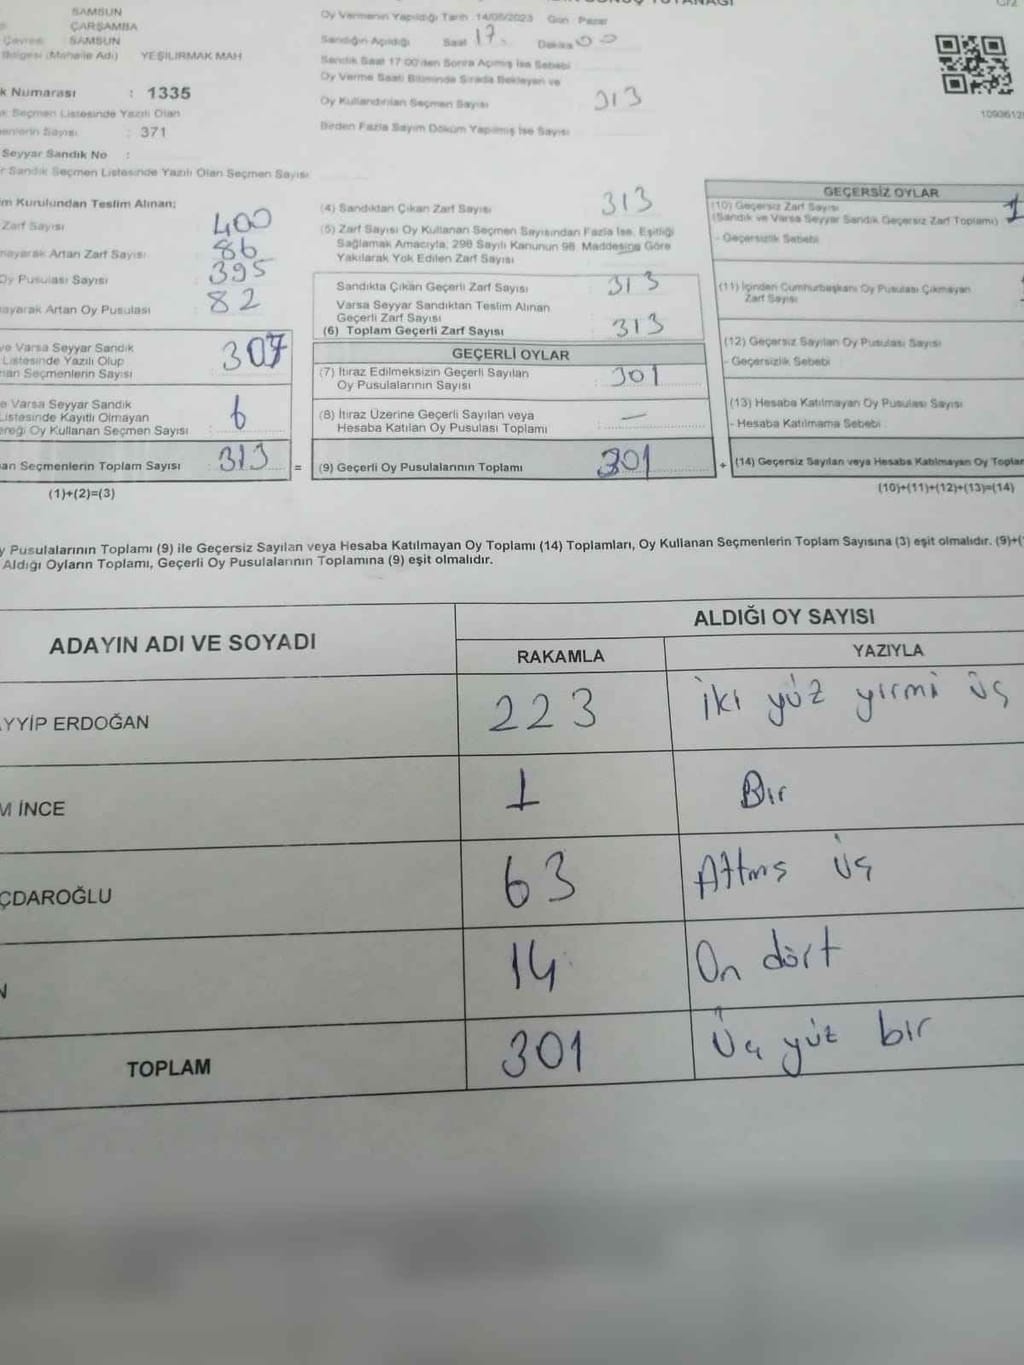 SONUÇ TUTANAĞI
SAMSUN
ÇARŞAMBA
Çevresi SAMSUN
Bölgesi (Mahalle Adı) YEŞİLIRMAK MAH
k Numarası : 1335
k Seçmen Listesinde Yazılı Olan
menlerin Sayısı : 371
Seyyar Sandık No :
r Sandık Seçmen Listesinde Yazılı Olan Seçmen Sayısı
Oy Vermenin Yapıldığı Tarih 14/05/2023 Gün : Pazar
Sandığın Açıldığı Saat 17 Dakika 00
Sandık Saat 17:00'den Sonra Açılmış İse Sebebi
Oy Verme Saati Bitiminde Sırada Bekleyen ve
Oy Kullandırılan Seçmen Sayısı 313
Birden Fazla Sayım Döküm Yapılmış İse Sayısı
im Kurulundan Teslim Alınan;
Zarf Sayısı 400
mayarak Artan Zarf Sayısı 86
Oy Pusulası Sayısı 395
mayarak Artan Oy Pusulası 82
ve Varsa Seyyar Sandık
Listesinde Yazılı Olup
nan Seçmenlerin Sayısı 307
e Varsa Seyyar Sandık
Listesinde Kayıtlı Olmayan
ereği Oy Kullanan Seçmen Sayısı 6
an Seçmenlerin Toplam Sayısı 313 =
(1)+(2)=(3)
(4) Sandıktan Çıkan Zarf Sayısı 313
(5) Zarf Sayısı Oy Kullanan Seçmen Sayısından Fazla İse, Eşitliği
Sağlamak Amacıyla, 298 Sayılı Kanunun 98. Maddesine Göre
Yakılarak Yok Edilen Zarf Sayısı
Sandıkta Çıkan Geçerli Zarf Sayısı 313
Varsa Seyyar Sandıktan Teslim Alınan
Geçerli Zarf Sayısı
(6) Toplam Geçerli Zarf Sayısı 313
GEÇERLİ OYLAR
(7) İtiraz Edilmeksizin Geçerli Sayılan
Oy Pusulalarının Sayısı 301
(8) İtiraz Üzerine Geçerli Sayılan veya
Hesaba Katılan Oy Pusulası Toplamı —
(9) Geçerli Oy Pusulalarının Toplamı 301 +
GEÇERSİZ OYLAR
(10) Geçersiz Zarf Sayısı
(Sandık ve Varsa Seyyar Sandık Geçersiz Zarf Toplamı) 1
- Geçersizlik Sebebi
(11) İçinden Cumhurbaşkanı Oy Pusulası Çıkmayan
Zarf Sayısı
(12) Geçersiz Sayılan Oy Pusulası Sayısı
- Geçersizlik Sebebi
(13) Hesaba Katılmayan Oy Pusulası Sayısı
- Hesaba Katılmama Sebebi
(14) Geçersiz Sayılan veya Hesaba Katılmayan Oy Toplam
(10)+(11)+(12)+(13)=(14)
y Pusulalarının Toplamı (9) ile Geçersiz Sayılan veya Hesaba Katılmayan Oy Toplamı (14) Toplamları, Oy Kullanan Seçmenlerin Toplam Sayısına (3) eşit olmalıdır. (9)+(
Aldığı Oyların Toplamı, Geçerli Oy Pusulalarının Toplamına (9) eşit olmalıdır.
ADAYIN ADI VE SOYADI
ALDIĞI OY SAYISI
RAKAMLA YAZIYLA
AYYİP ERDOĞAN 223 İki yüz yirmi üç
M İNCE 1 Bir
ÇDAROĞLU 63 Altmş üç
N 14 On dört
TOPLAM 301 Üç yüz bir